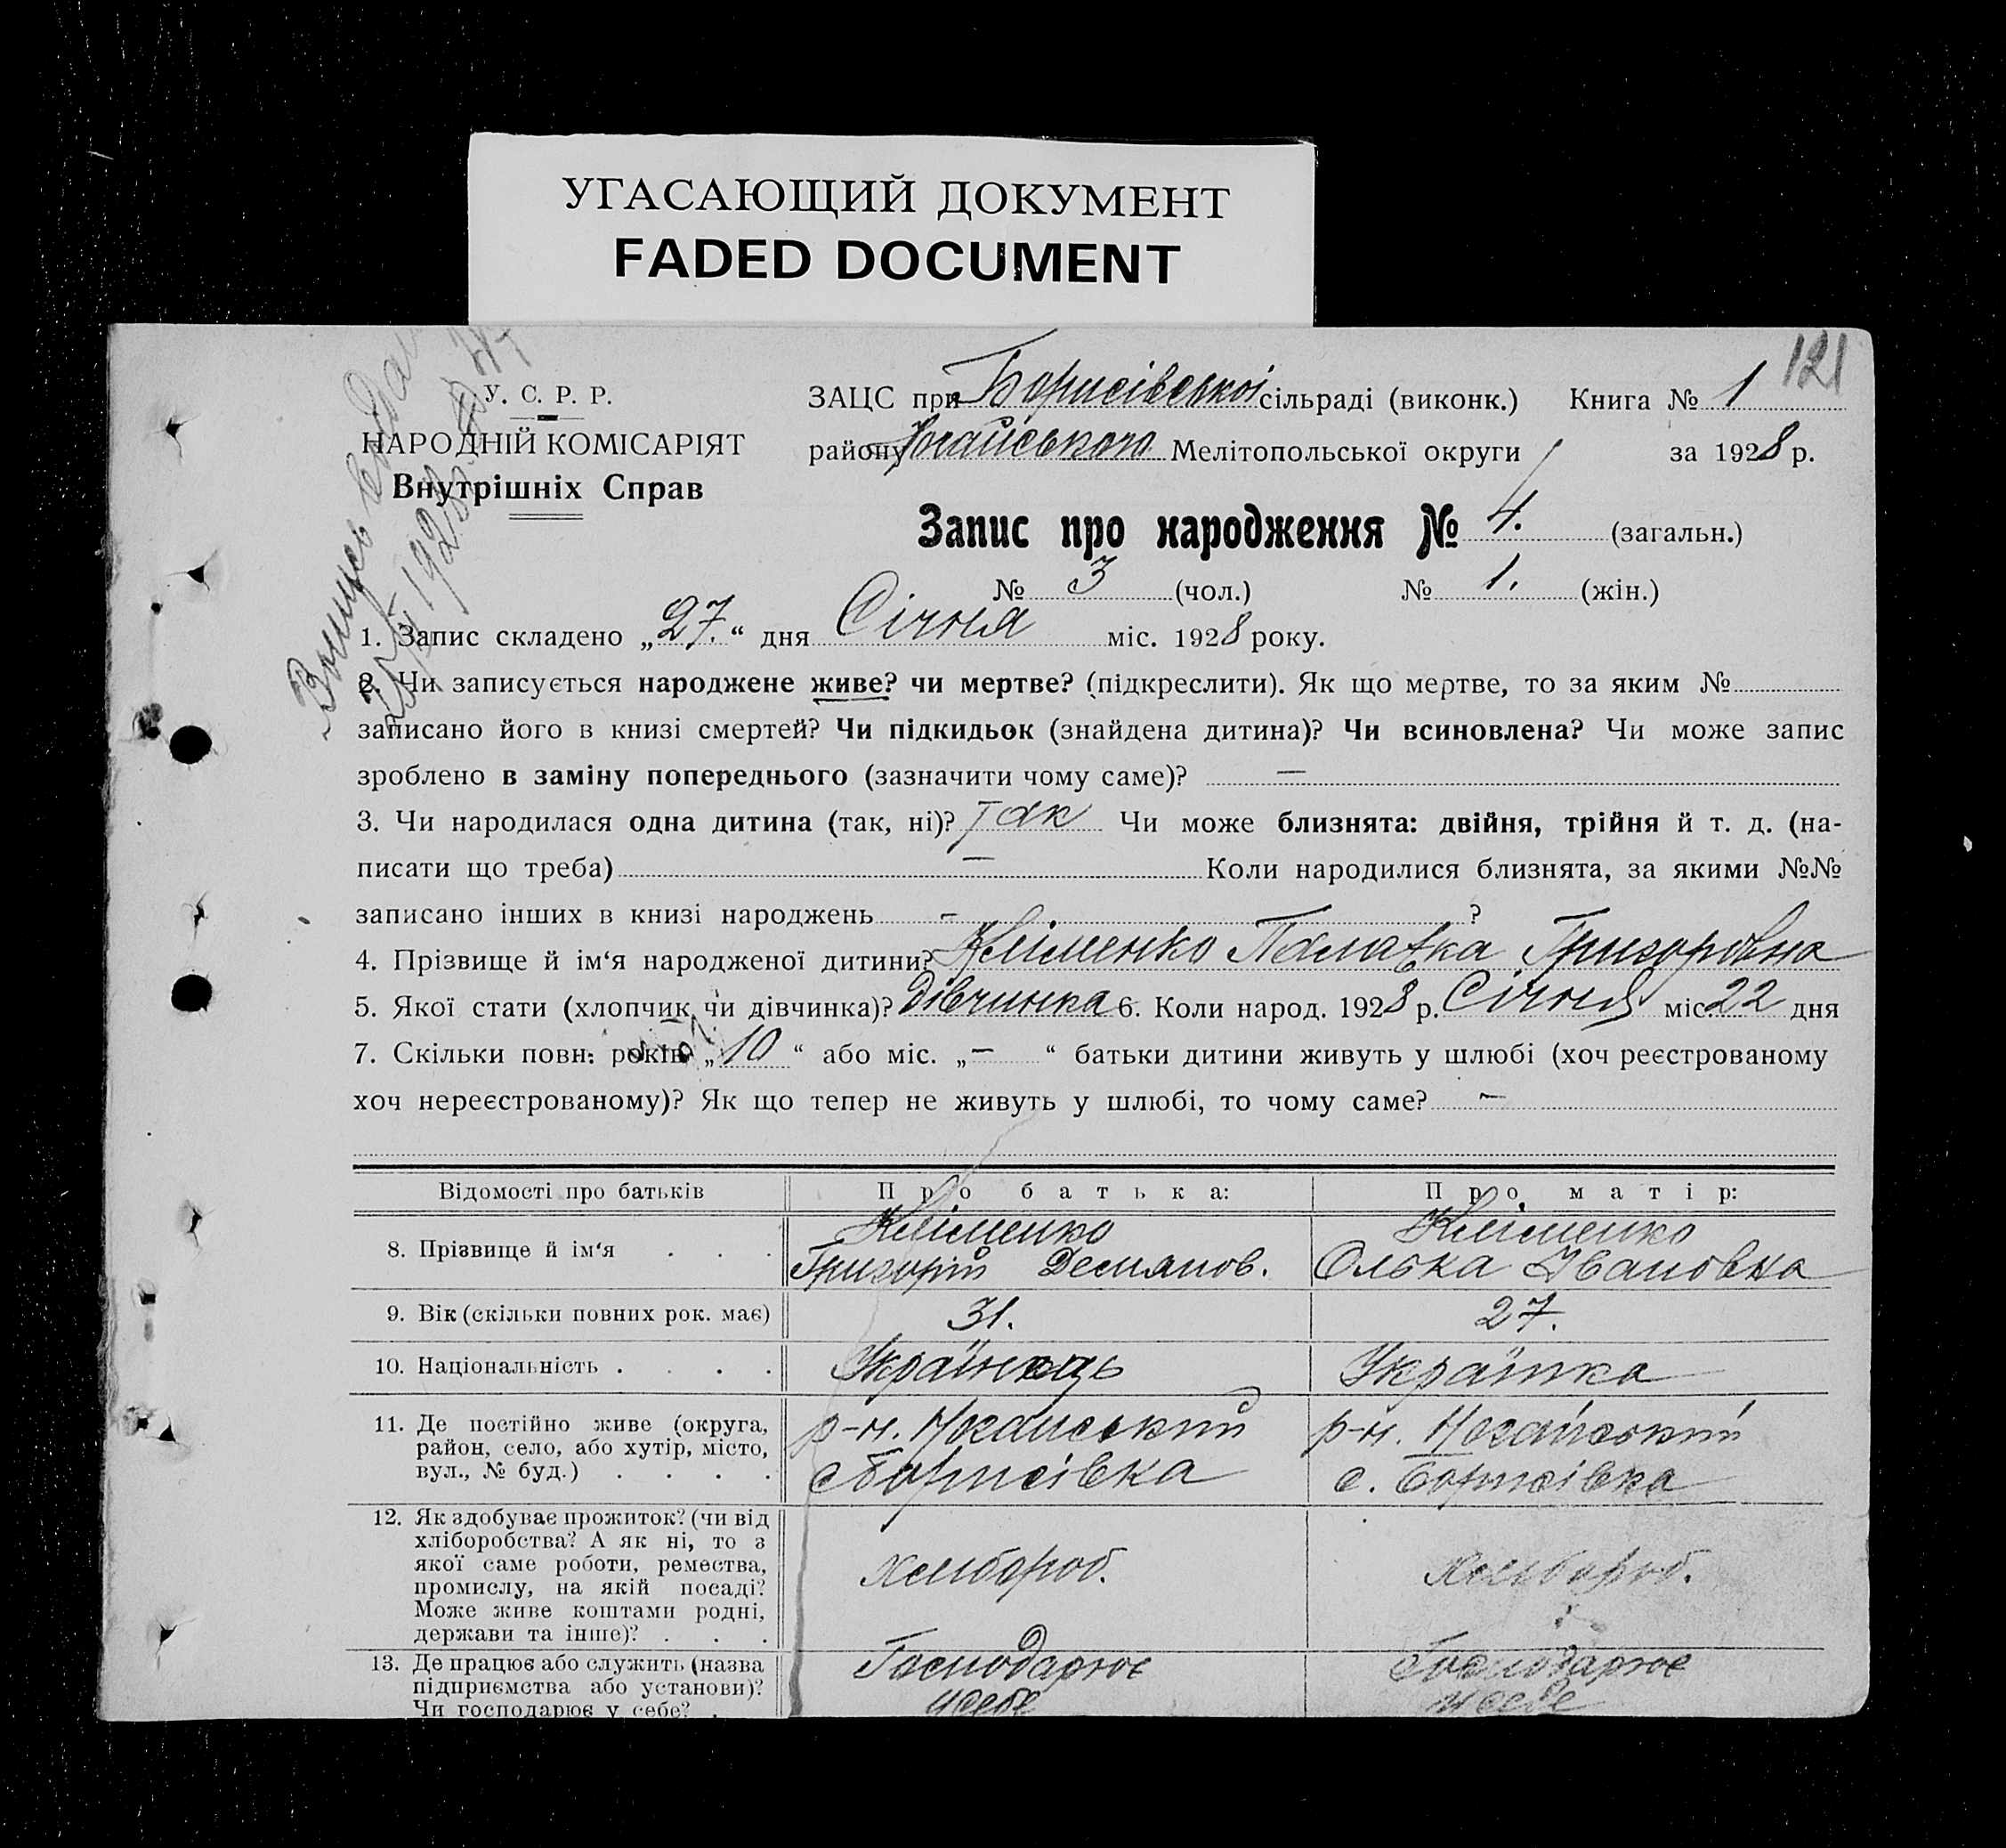 УГАСАЮЩИЙ ДОКУМЕНТ
FADED DOCUMENT
121
У. С. Р. Р.
НАРОДНІЙ КОМІСАРІЯТ
Внутрішніх Справ
ЗАЦС при Борисівської сільраді (виконк.) Книга № 1
району Ногайського Мелітопольської округи за 1928 р.
Запис про народження № 4. (загальн.)
№ 3 (чол.) № 1. (жін.)
1928
1. Запис складено „27.“ дня Січня міс. 1928 року.
2. Чи записується народжене живе? чи мертве? (підкреслити). Як що мертве, то за яким №
записано його в книзі смертей? Чи підкидьок (знайдена дитина)? Чи всиновлена? Чи може запис
зроблено в заміну попереднього (зазначити чому саме)? —
3. Чи народилася одна дитина (так, ні)? Так Чи може близнята: двійня, трійня й т. д. (на-
писати що треба) — Коли народилися близнята, за якими №№
записано інших в книзі народжень – ?
4. Прізвище й ім‘я народженої дитини? Кліменко Григоровна
5. Якої стати (хлопчик чи дівчинка)? Дівчинка 6. Коли народ. 1928 р. Січня міс. 22 дня
7. Скільки повн. років „10“ або міс. „—“ батьки дитини живуть у шлюбі (хоч реєстрованому
хоч нереєстрованому)? Як що тепер не живуть у шлюбі, то чому саме? —
Відомості про батьків Про батька: Про матір:
8. Прізвище й ім‘я . . . Кліменко Кліменко
Григорій Демянов. Олька Івановна
9. Вік (скільки повних рок. має) 31. 27.
10. Національність . . . . Українець Українка
11. Де постійно живе (округа, р-н. Ногайський р-н. Ногайський
район, село, або хутір, місто, с Борисівка с. Борисівка
вул., № буд.) . . . .
12. Як здобуває прожиток? (чи від
хліборобства? А як ні, то з
якої саме роботи, ремества, хлібороб. хлібороб.
промислу, на якій посаді?
Може живе коштами родні,
держави та інше)? . . .
13. Де працює або служить (назва Господарює Господарює
підприємства або установи)? у себе у себе
Чи господарює у себе? .